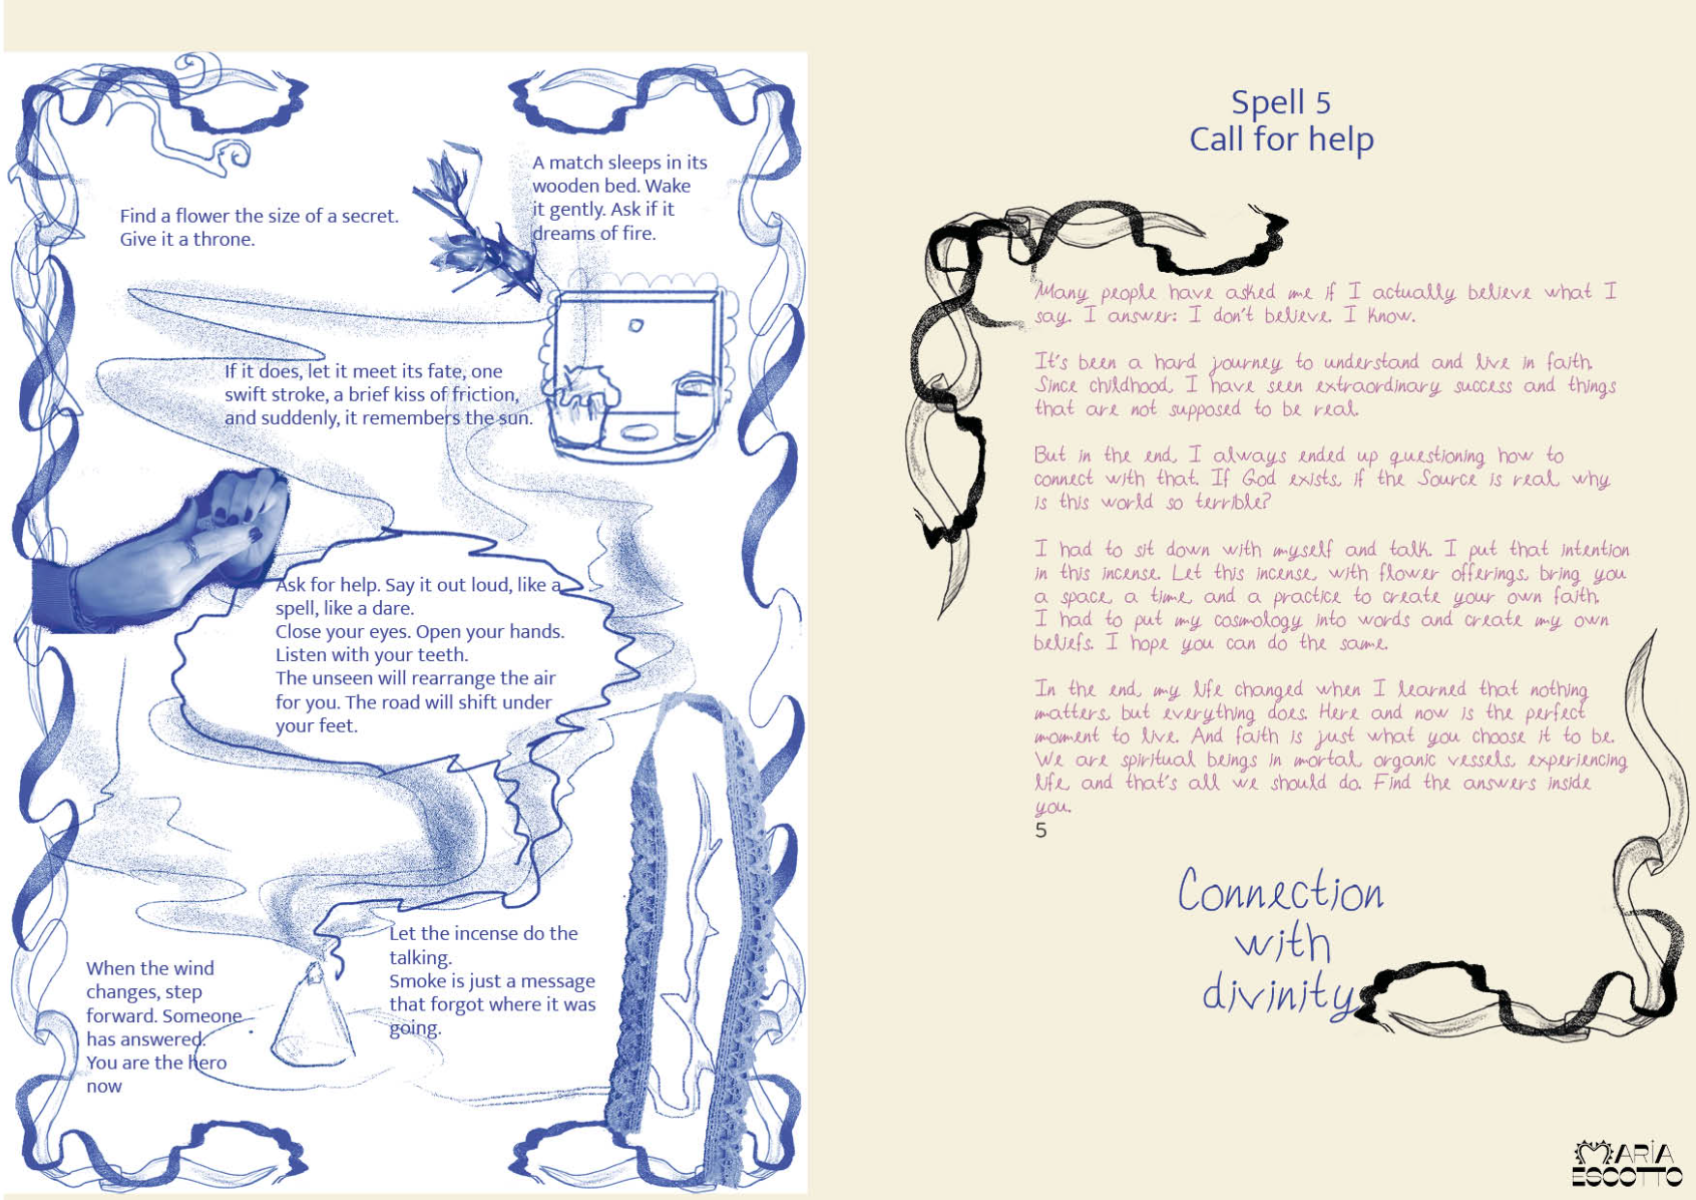 Find a flower the size of a secret.
Give it a throne.
A match sleeps in its
wooden bed. Wake
it gently. Ask if it
dreams of fire.
If it does, let it meet its fate, one
swift stroke, a brief kiss of friction,
and suddenly, it remembers the sun.
Ask for help. Say it out loud, like a
spell, like a dare.
Close your eyes. Open your hands.
Listen with your teeth.
The unseen will rearrange the air
for you. The road will shift under
your feet.
Let the incense do the
talking.
Smoke is just a message
that forgot where it was
going.
When the wind
changes, step
forward. Someone
has answered.
You are the hero
now
Spell 5
Call for help
Many people have asked me if I actually believe what I
say. I answer: I don't believe. I know.
It's been a hard journey to understand and live in faith.
Since childhood, I have seen extraordinary success and things
that are not supposed to be real.
But in the end, I always ended up questioning how to
connect with that. If God exists, if the Source is real, why
is this world so terrible?
I had to sit down with myself and talk. I put that intention
in this incense. Let this incense, with flower offerings, bring you
a space, a time, and a practice to create your own faith.
I had to put my cosmology into words and create my own
beliefs. I hope you can do the same.
In the end, my life changed when I learned that nothing
matters, but everything does. Here and now is the perfect
moment to live. And faith is just what you choose it to be.
We are spiritual beings in mortal, organic vessels, experiencing
life, and that's all we should do. Find the answers inside
you.
5
Connection
with
divinity
MARIA
ESCOTTO